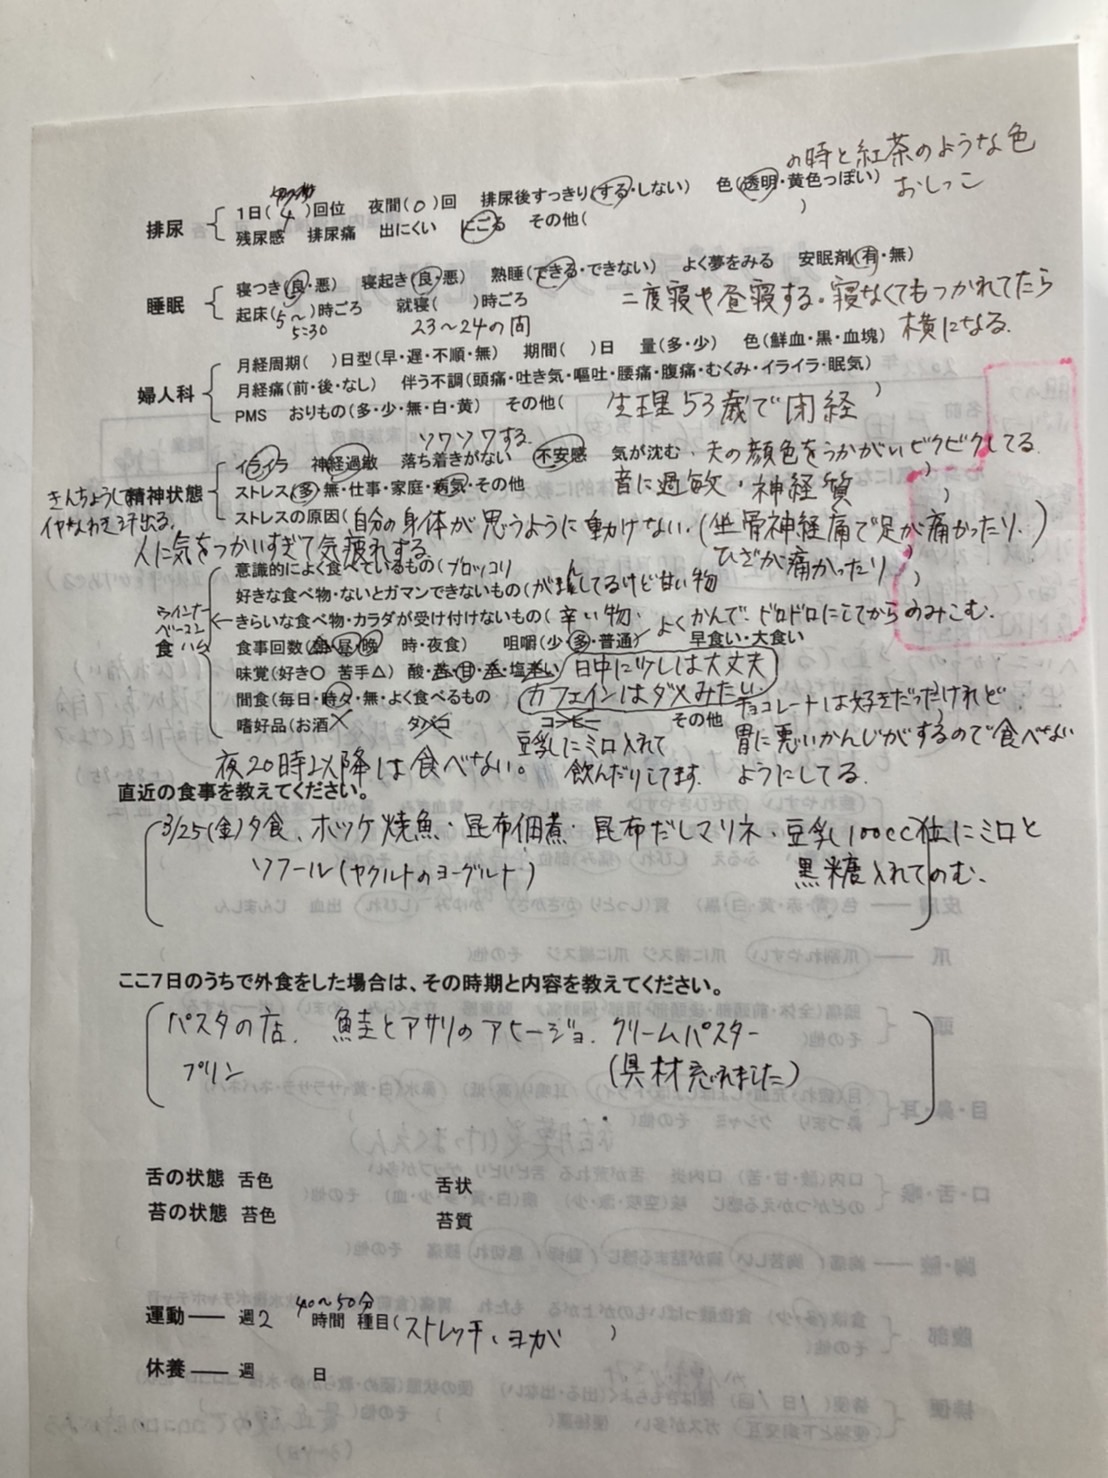 の時と紅茶のような色
おしっこ
排尿 1日(4)回位 夜間(0)回 排尿後すっきり(する・しない) 色(透明・黄色っぽい)
残尿感 排尿痛 出にくい にごる その他( )
睡眠 寝つき(良・悪) 寝起き(良・悪) 熟睡(できる・できない) よく夢をみる 安眠剤(有・無)
起床(5〜5:30)時ごろ 就寝( )時ごろ
23〜24の間
二度寝や昼寝する。寝なくてもつかれてたら
横になる。
婦人科 月経周期( )日型(早・遅・不順・無) 期間( )日 量(多・少) 色(鮮血・黒・血塊)
月経痛(前・後・なし) 伴う不調(頭痛・吐き気・嘔吐・腰痛・腹痛・むくみ・イライラ・眠気)
PMS おりもの(多・少・無・白・黄) その他( 生理53歳で閉経 )
ソワソワする。
精神状態 イライラ 神経過敏 落ち着きがない 不安感 気が沈む・夫の顔色をうかがいビクビクしてる。
ストレス(多・無・仕事・家庭・病気・その他
音に過敏・神経質
ストレスの原因(自分の身体が思うように動けない。(坐骨神経痛で足が痛かったり・)
ひざが痛かったり
きんちょうして
イヤなあせ汗出る。
人に気をつかいすぎて気疲れする。
食 意識的によく食べているもの(ブロッコリ
好きな食べ物・ないとガマンできないもの(がまんしてるけど甘い物
ウインナー
ベーコン
ハム
きらいな食べ物・カラダが受け付けないもの(辛い物・
よくかんで、ドロドロにしてからのみこむ。
食事回数(朝・昼・晩 時・夜食) 咀嚼(少・多・普通) 早食い・大食い
味覚(好き〇 苦手△) 酸・苦・甘・辛・塩
日中に少しは大丈夫
カフェインはダメみたい
間食(毎日・時々・無・よく食べるもの
チョコレートは好きだったけれど
胃に悪いかんじがするので食べない
ようにしてる。
嗜好品(お酒 タバコ コーヒー その他
豆乳にミロ入れて
飲んだりしてます.
夜20時以降は食べない。
直近の食事を教えてください。
3/25(金)夕食、ホッケ焼魚・昆布佃煮・昆布だしマリネ・豆乳100cc位にミロと
黒糖入れてのむ、
ソフール(ヤクルトのヨーグルト)
ここ7日のうちで外食をした場合は、その時期と内容を教えてください。
パスタの店. 鮭とアサリのアヒージョ. クリームパスター
プリン (具材忘れました)
舌の状態 舌色 舌状
苔の状態 苔色 苔質
運動 週2 40〜50分 時間 種目(ストレッチ、ヨガ )
休養 週 日